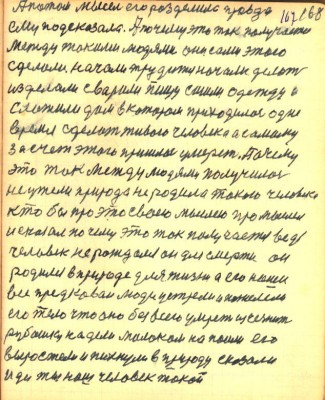 А потом мысль его раздалась правда 168
ему подсказала. А почему это так получается
между такими людями они сами этого
сделали, начали трудити начали делать
изделами сварили пищу сшили одежду и
сложили дом в котором приходилось одне
время сделать живого человека а самому
за счет этого пришлос умереть. Почему
это так между людям получилос
неужели природа не родила такого человека
кто бы про это своею мыслею промыслел
и сказал почему это так получается ведь
человек не рождался он для смерти он
родился в природе для жизни а его наши
все предковая люди встрели и пожалели
его тело что оно без всего умрет и сшили
рубашку надели молоком напоили его
выростили и пихнули в природу сказали
иди ты наш человек такой